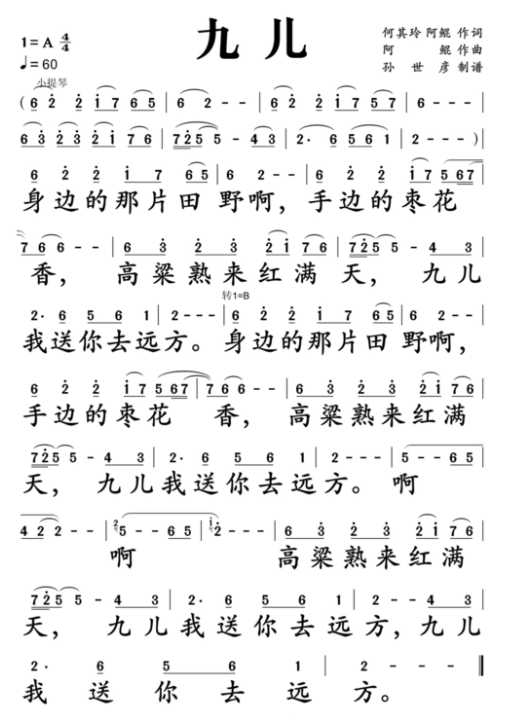 九儿
何其玲 阿鲲 作词
阿 鲲 作曲
孙 世 彦 制谱
1=A 4/4
♩=60
小提琴
(6 2 2 1 7 6 5 | 6 2 - - | 6 2 2 1 7 5 7 | 6 - - - |
6 3 2 3 2 1 7 6 | 7 2 5 5 - 4 3 | 2· 6 5 6 1 | 2 - - - )|
6 2 2 1 7 6 5 | 6 2 - - | 6 2 2 1 7 5 6 7 |
身边的那片田 野啊，手边的枣花
7 6 6 - - | 6 3 2 3 2 1 7 6 | 7 2 5 5 - 4 3 |
香， 高粱熟来红满 天， 九儿
转1=B
2· 6 5 6 1 | 2 - - - | 6 2 2 1 7 6 5 | 6 2 - - |
我送你去远方。身边的那片田 野啊，
6 2 2 1 7 5 6 7 | 7 6 6 - - | 6 3 2 3 2 1 7 6 |
手边的枣花 香， 高粱熟来红满
7 2 5 5 - 4 3 | 2· 6 5 6 1 | 2 - - - | 5 - - 6 5 |
天， 九儿我送你去远方。 啊
4 2 2 - - | 2 5 - - 6 5 | 1 2· - - - | 6 3 2 3 2 1 7 6 |
啊 高粱熟来红满
7 2 5 5 - 4 3 | 2· 6 5 6 1 | 2 - - 4 3 |
天， 九儿我送你去远方，九儿
2· 6 5 6 1 | 2 - - - ‖
我 送 你 去 远 方。